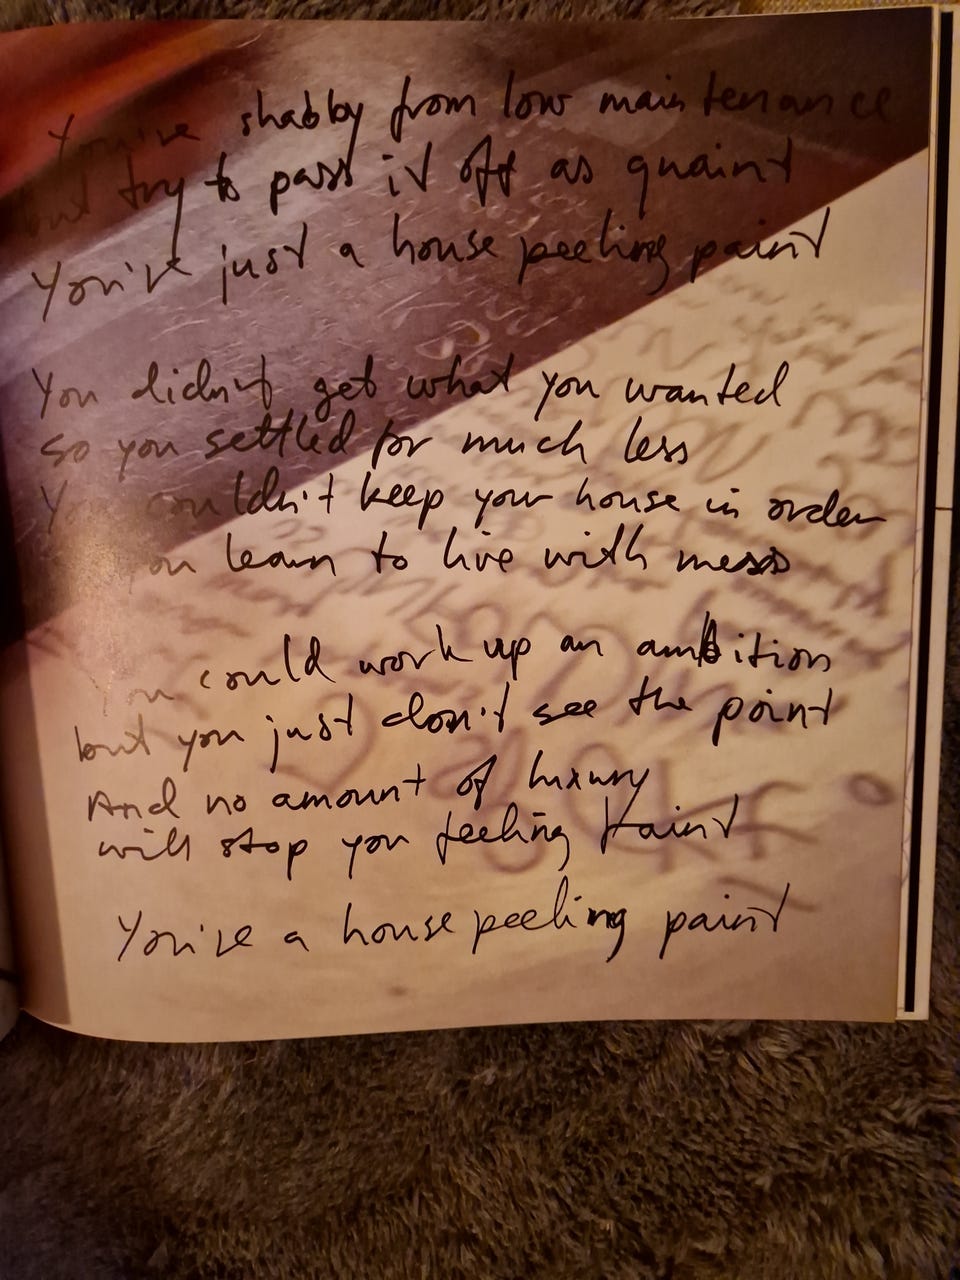 You're shabby from low maintenance
but try to pass it off as quaint
You're just a house peeling paint
You didn't get what you wanted
so you settled for much less
You couldn't keep your house in order
you learn to live with mess
You could work up an ambition
but you just don't see the point
And no amount of luxury
will stop you feeling faint
You're a house peeling paint